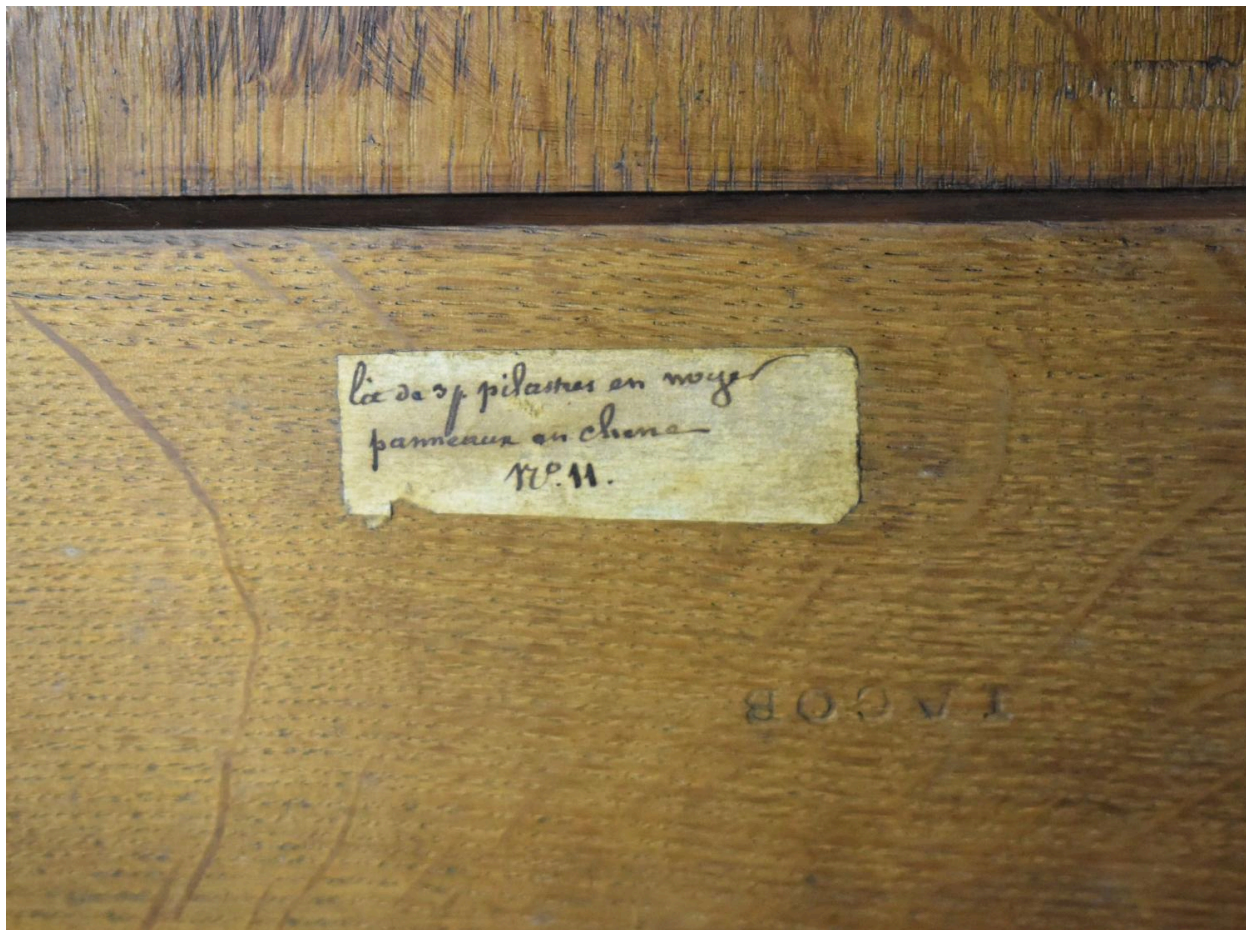 lit de 3p pilastres en noyer
panneaux en chene
N°. 11.
IACOB